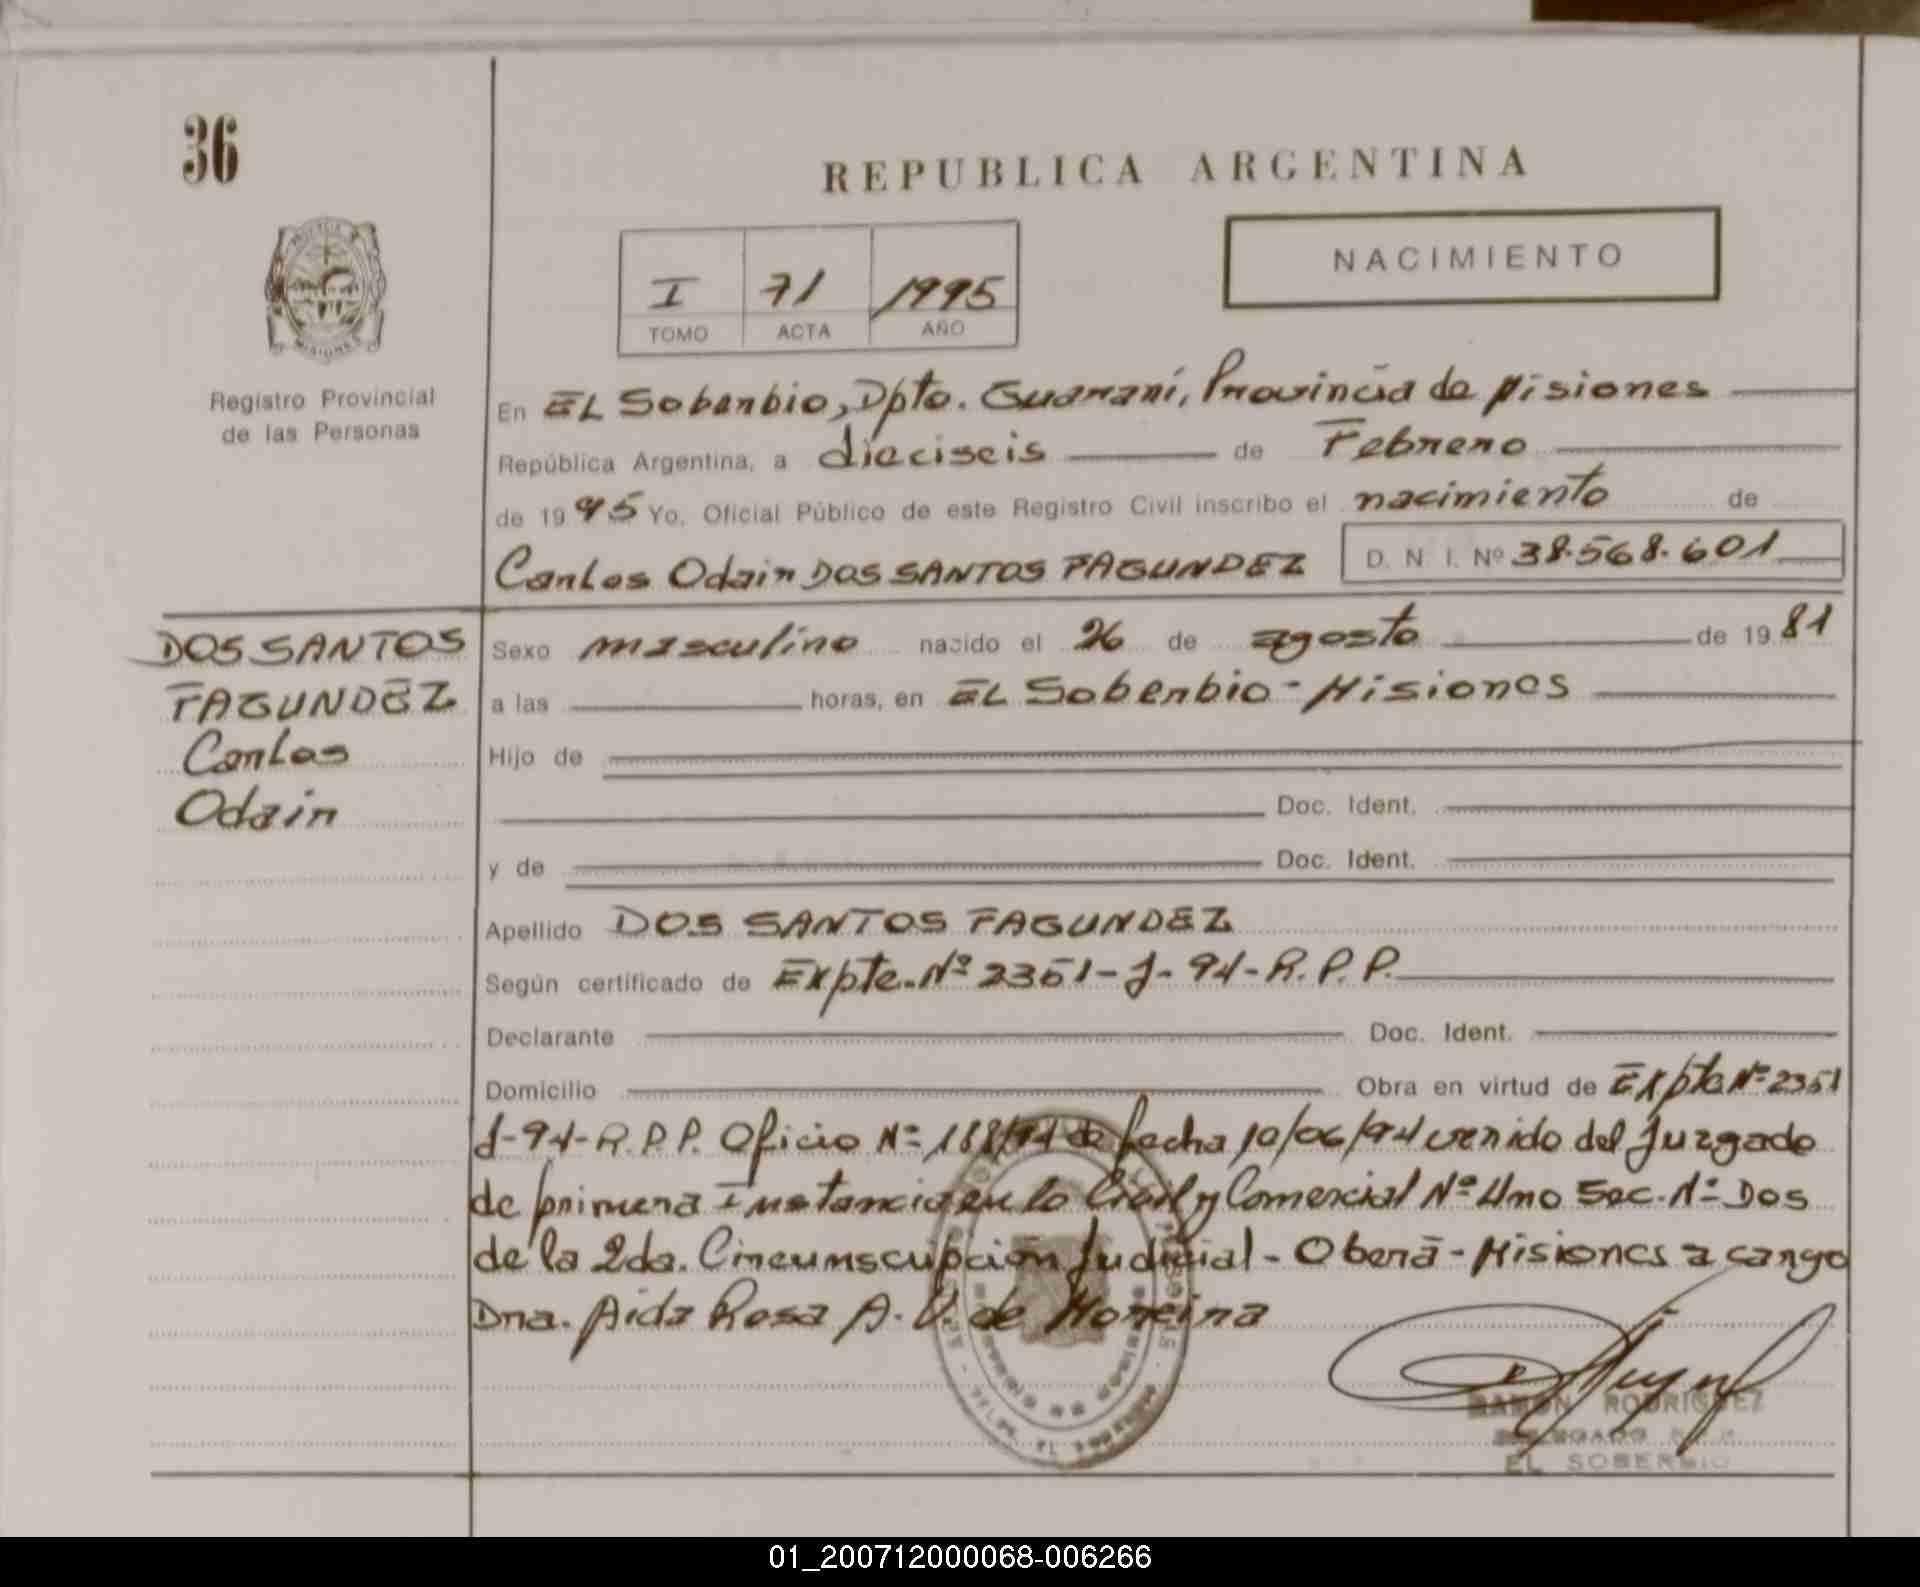 36
REPUBLICA ARGENTINA
NACIMIENTO
I 71 1995
TOMO ACTA AÑO
MISIONES
Registro Provincial
de las Personas
En EL Soberbio, Dpto. Guaraní, Provincia de Misiones
República Argentina, a dieciseis de Febrero
de 1995 Yo, Oficial Público de este Registro Civil inscribo el nacimiento de
Carlos Odair DOS SANTOS FAGUNDEZ D. N. I. Nº 38.568.601
DOS SANTOS
FAGUNDEZ
Carlos
Odair
Sexo masculino nacido el 26 de agosto de 1981
a las horas, en EL Soberbio - Misiones
Hijo de
Doc. Ident.
y de Doc. Ident.
Apellido DOS SANTOS FAGUNDEZ
Según certificado de Expte. Nº 2351-J-94-R.P.P.
Declarante Doc. Ident.
Domicilio Obra en virtud de Expte Nº 2351
J-94-R.P.P. Oficio Nº de fecha 10/06/94 venido del Juzgado
de primera Instancia en lo Civil y Comercial Nº Uno Sec. Nº Dos
de la 2da. Circunscupción Judicial - Oberá - Misiones a cargo
Dra. Aida Rosa A. V. de Moreira
RAMON RODRIGUEZ
DELEGADO
EL SOBERBIO
01_200712000068-006266